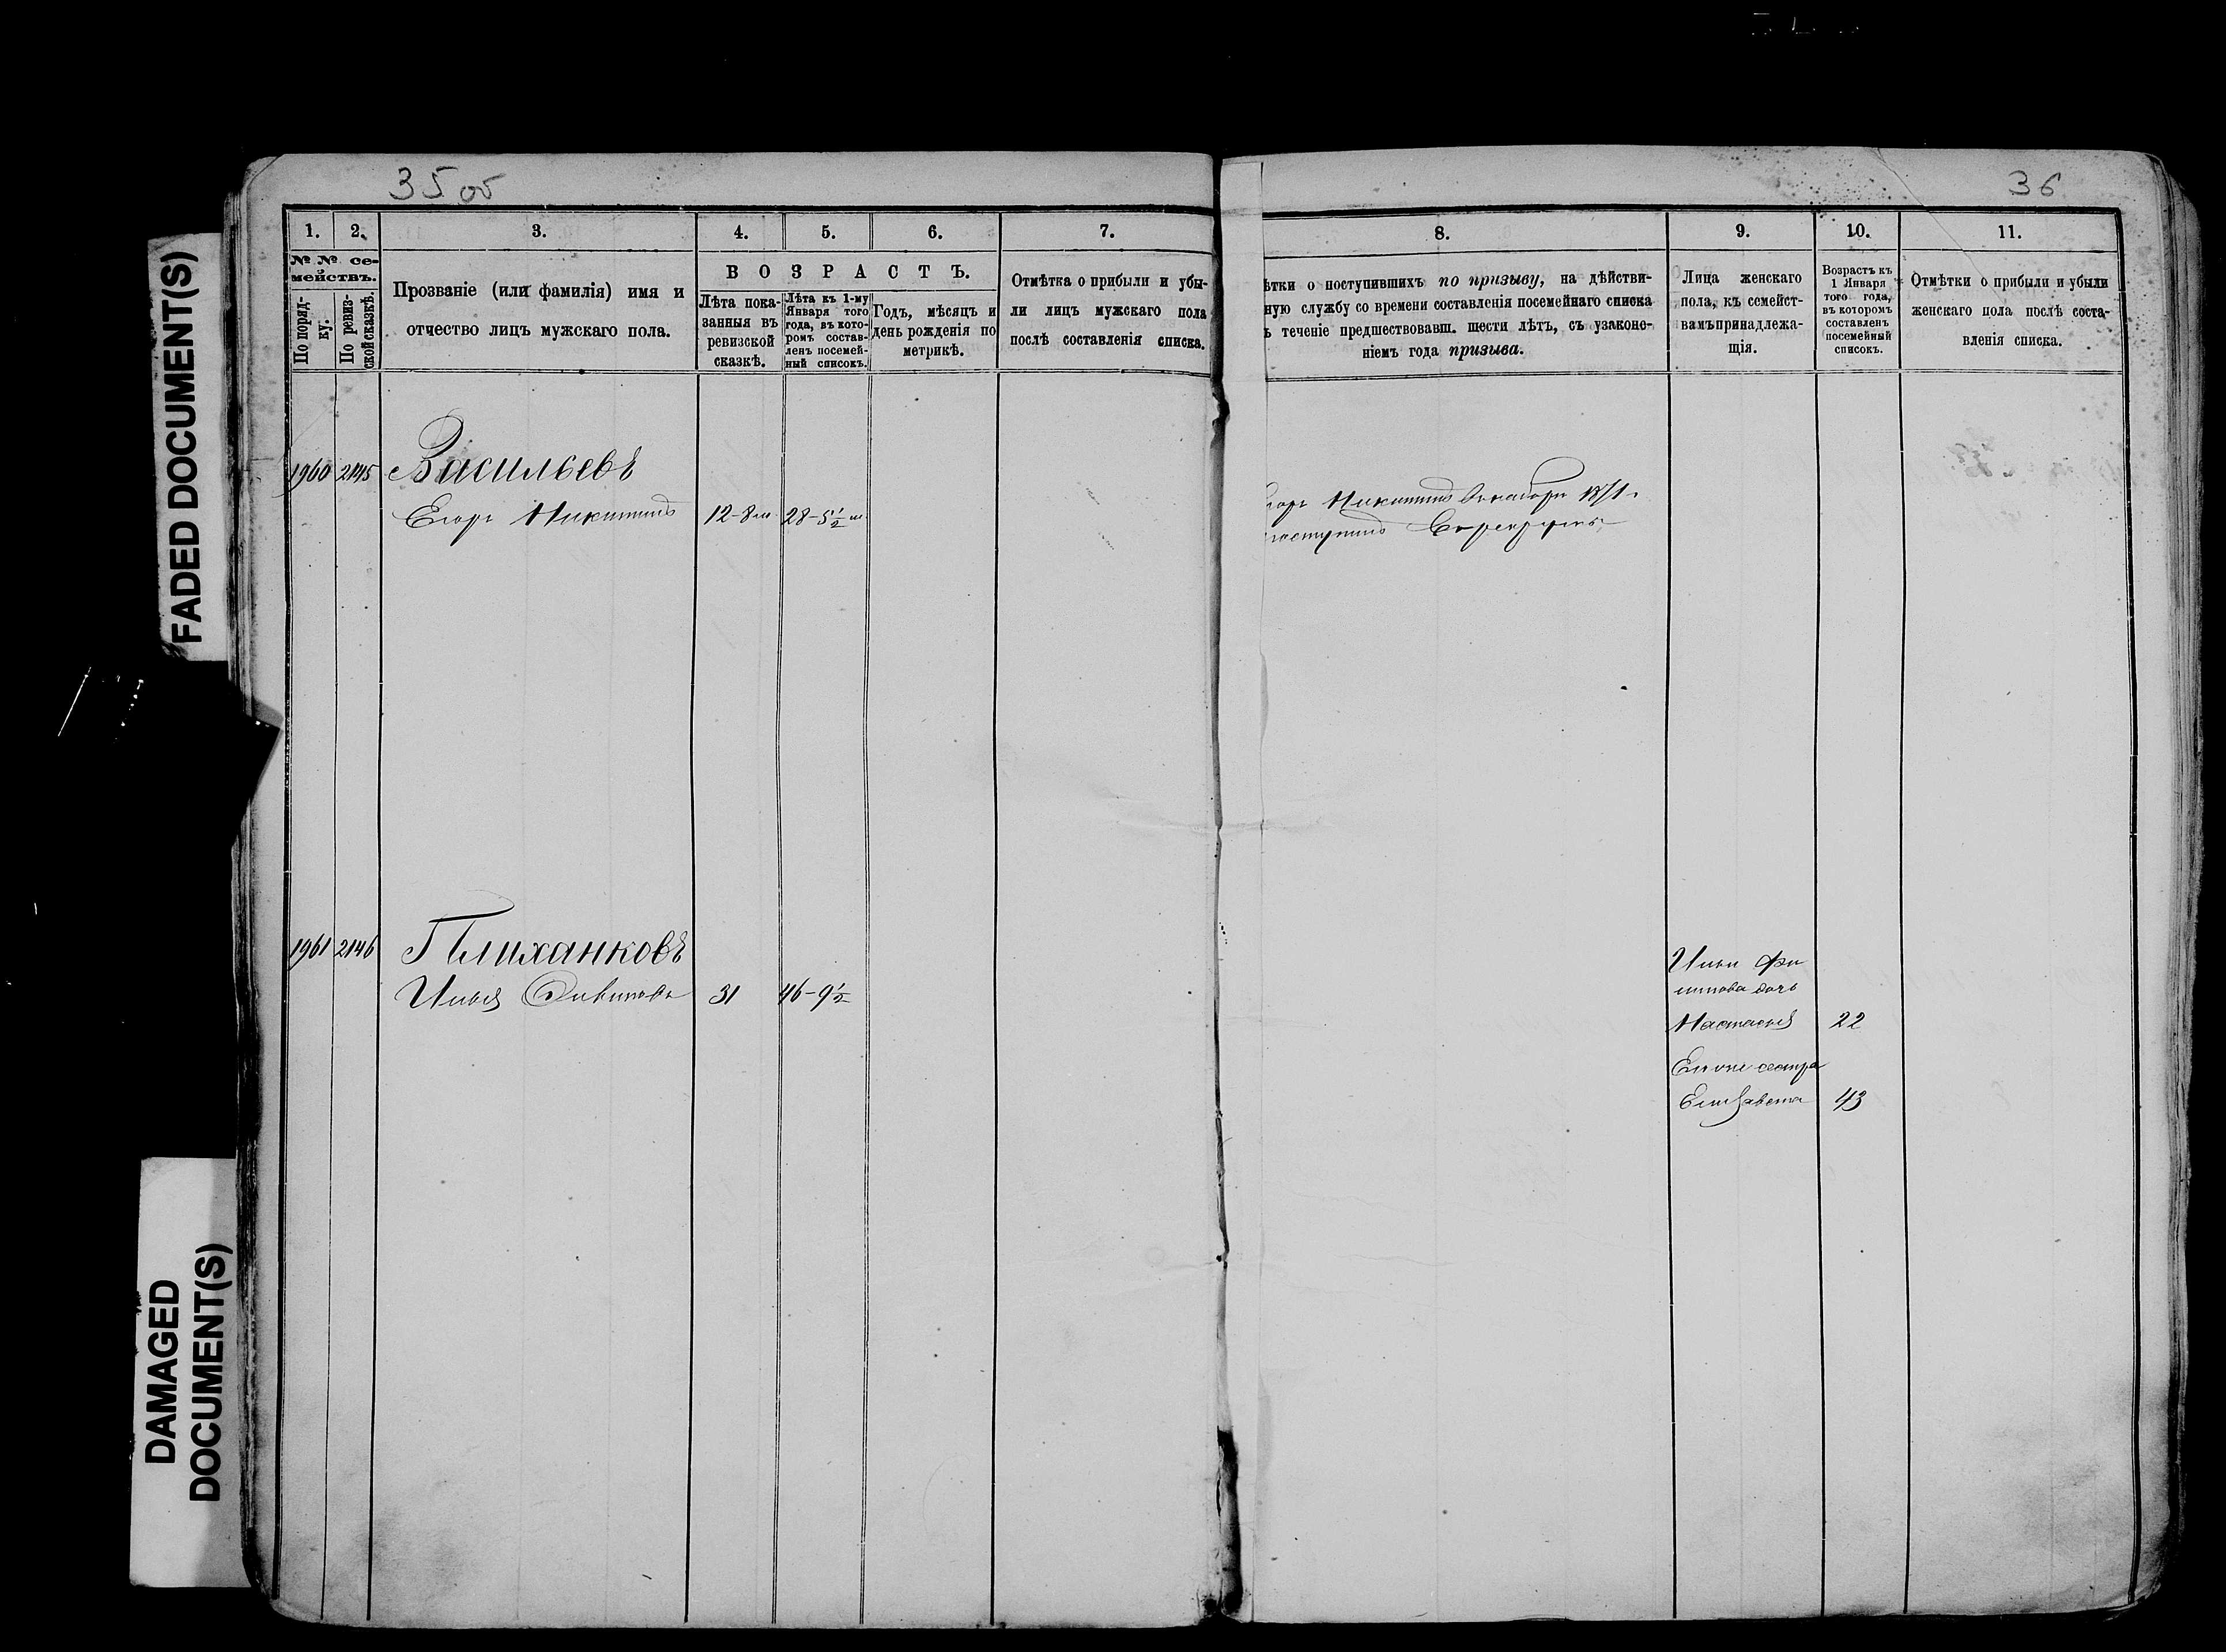 35 об
36
FADED DOCUMENT(S)
DAMAGED
DOCUMENT(S)
1. 2. 3. 4. 5. 6. 7.
№ № се-
мействъ.
По поряд-
ку.
По ревиз-
ской сказкѣ.
Прозваніе (или фамилія) имя и
отчество лицъ мужскаго пола.
ВОЗРАСТЪ.
Лѣта пока-
занныя въ
ревизской
сказкѣ.
Лѣта къ 1-му
Января того
года, въ кото-
ромъ состав-
ленъ посемей-
ный списокъ.
Годъ, мѣсяцъ и
день рожденія по
метрикѣ.
Отмѣтка о прибыли и убы-
ли лицъ мужскаго пола
послѣ составленія списка.
1960 2145 Васильевъ
Егоръ Никитинъ 12-8 м. 28-5½ м.
1961 2146
Илья 31 46-9½
8. 9. 10. 11.
ѣтки о поступившихъ по призыву, на дѣйстви-
ную службу со времени составленія посемейнаго списка
ь теченіе предшествовавш. шести лѣтъ, съ узаконе-
ніемъ года призыва.
Лица женскаго
пола, къ семейст-
вамъ принадлежа-
щія.
Возрастъ къ
1 Января
того года,
въ которомъ
составленъ
посемейный
списокъ.
Отмѣтки о прибыли и убыли
женскаго пола послѣ соста-
вленія списка.
Никитинъ 1871
поступилъ
Ильи Фи
липова дочь
Настасья 22
Его же сестра
Елизавета 43